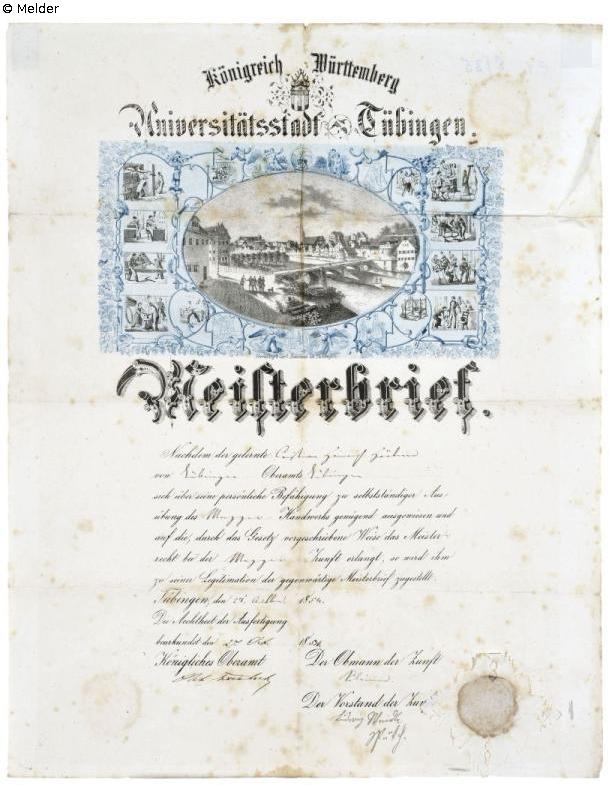 © Melder
Königreich Württemberg
Universitätsstadt Tübingen.
Meisterbrief.
Nachdem der gelernte
von Tübingen Oberamts Tübingen
sich über seine persönliche Befähigung zu selbstständiger Aus-
übung des Metzger Handwerks genügend ausgewiesen und
auf die, durch das Gesetz vorgeschriebene Weise das Meister-
recht bei der Metzger Zunft erlangt, so wird ihm
zu seiner Legitimation der gegenwärtige Meisterbrief zugestellt.
Tübingen, den 185
Die Aechtheit der Ausfertigung
beurkundet den 185
Königliches Oberamt Der Obmann der Zunft
Der Vorstand der Zun